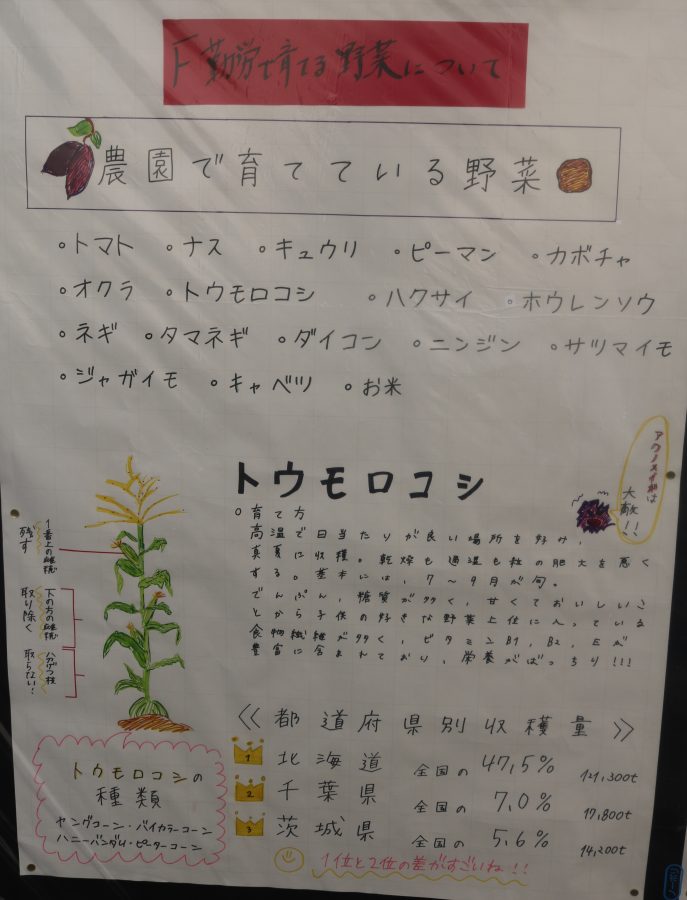 勤労で育てる野菜について
農園で育てている野菜
○トマト ○ナス ○キュウリ ○ピーマン ○カボチャ
○オクラ ○トウモロコシ ○ハクサイ ○ホウレンソウ
○ネギ ○タマネギ ○ダイコン ○ニンジン ○サツマイモ
○ジャガイモ ○キャベツ ○お米
アワノメイガは
大敵!!
トウモロコシ
○育て方
高温で日当たりが良い場所を好み,
真夏に収穫。乾燥も過湿も粒の肥大を悪く
する。基本には,7〜9月が旬。
でんぷん,糖質が多く,甘くておいしいこ
とから子供の好きな野菜上位に入っている
食物繊維が多く,ビタミンB1,B2,Eが
豊富に含まれており,栄養がばっちり!!!
1番上の雌穂
残す
下の方の雌穂
取り除く
取らない!
≪都道府県別収穫量≫
1 北海道 全国の 47,5% 121,300t
2 千葉県 全国の 7,0% 17,800t
3 茨城県 全国の 5,6% 14,200t
1位と2位の差がすごいね!!
トウモロコシの
種類
ヤングコーン・バイカラーコーン
ハニーバンダム・ピーターコーン